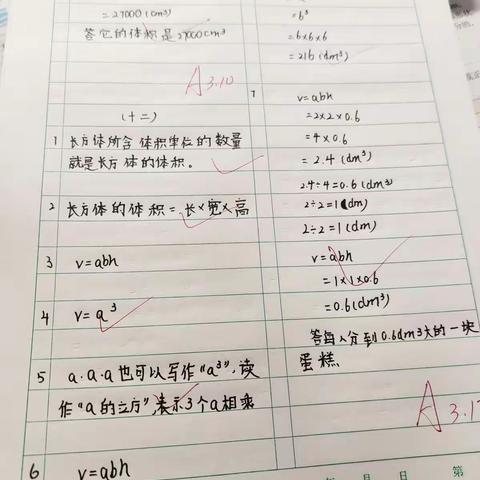 =27000(cm³)
答它的体积是27000cm³
A 3.10
(十二)
1 长方体所含体积单位的数量
就是长方体的体积。
2 长方体的体积=长×宽×高
3 v=abh
4 v=a³
5 a·a·a也可以写作“a³”,读
作“a的立方”,表示3个a相乘
6 v=abh
=b³
=6×6×6
=216(dm³)
7 v=abh
=2×2×0.6
=4×0.6
=2.4(dm³)
2.4÷4=0.6(dm³)
2÷2=1(dm)
2÷2=1(dm)
v=abh
=1×1×0.6
=0.6(dm³)
答每人分到0.6dm3大的一块
蛋糕
A 3.1
月 日 第